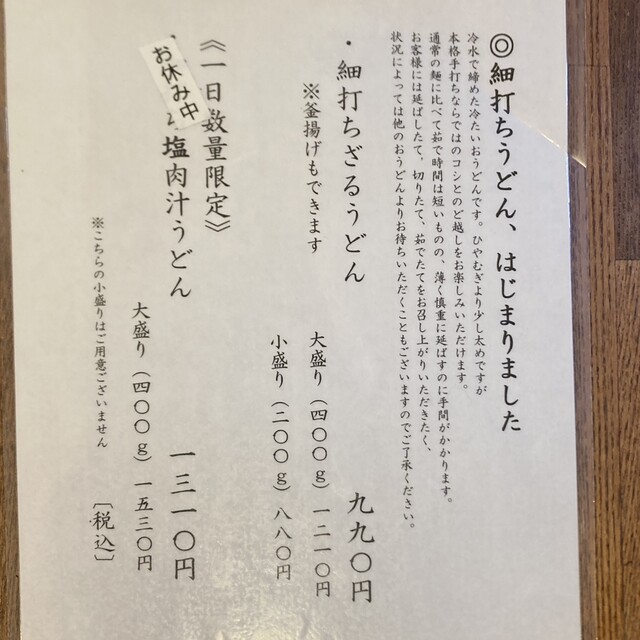 ◎細打ちうどん、はじまりました
冷水で締めた冷たいおうどんです。ひやむぎより少し太めですが
本格手打ちならではのコシとのど越しをお楽しみいただけます。
通常の麺に比べて茹で時間は短いものの、薄く慎重に延ばすのに手間がかかります。
お客様には延ばしたて、切りたて、茹でたてをお召し上がりいただきたく、
状況によっては他のおうどんよりお待ちいただくこともございますのでご了承ください。
・細打ちざるうどん 九九〇円
※釜揚げもできます
大盛り(四〇〇g)一二一〇円
小盛り(二〇〇g)八八〇円
《一日数量限定》
お休み中
塩肉汁うどん 一三一〇円
大盛り(四〇〇g)一五三〇円
※こちらの小盛りはご用意ございません
[税込]